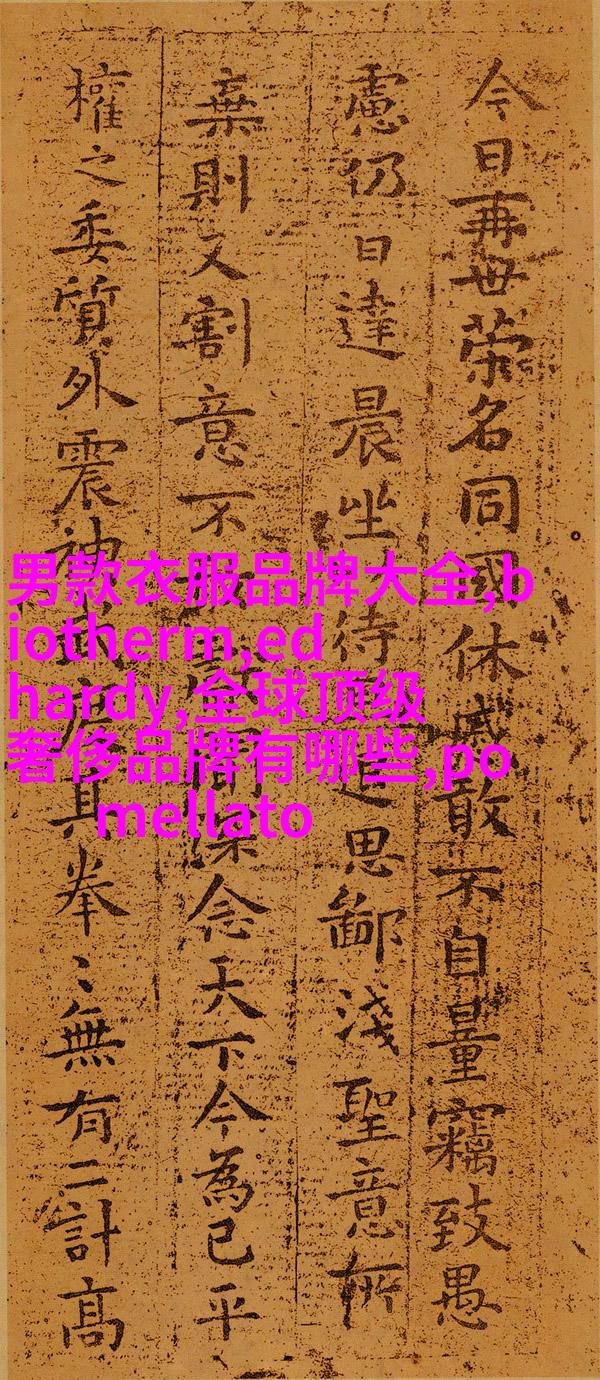 今日再世榮名同國休慼敢不自量竊致愚
慮仍日達晨坐待退思鄙淺聖意所
棄則又割意不聞深念天下今為已平
權之委質外震神武度其拳〻無有二計高
男款衣服品牌大全,b
iotherm,ed
hardy,全球顶级
奢侈品牌有哪些,po
mellato